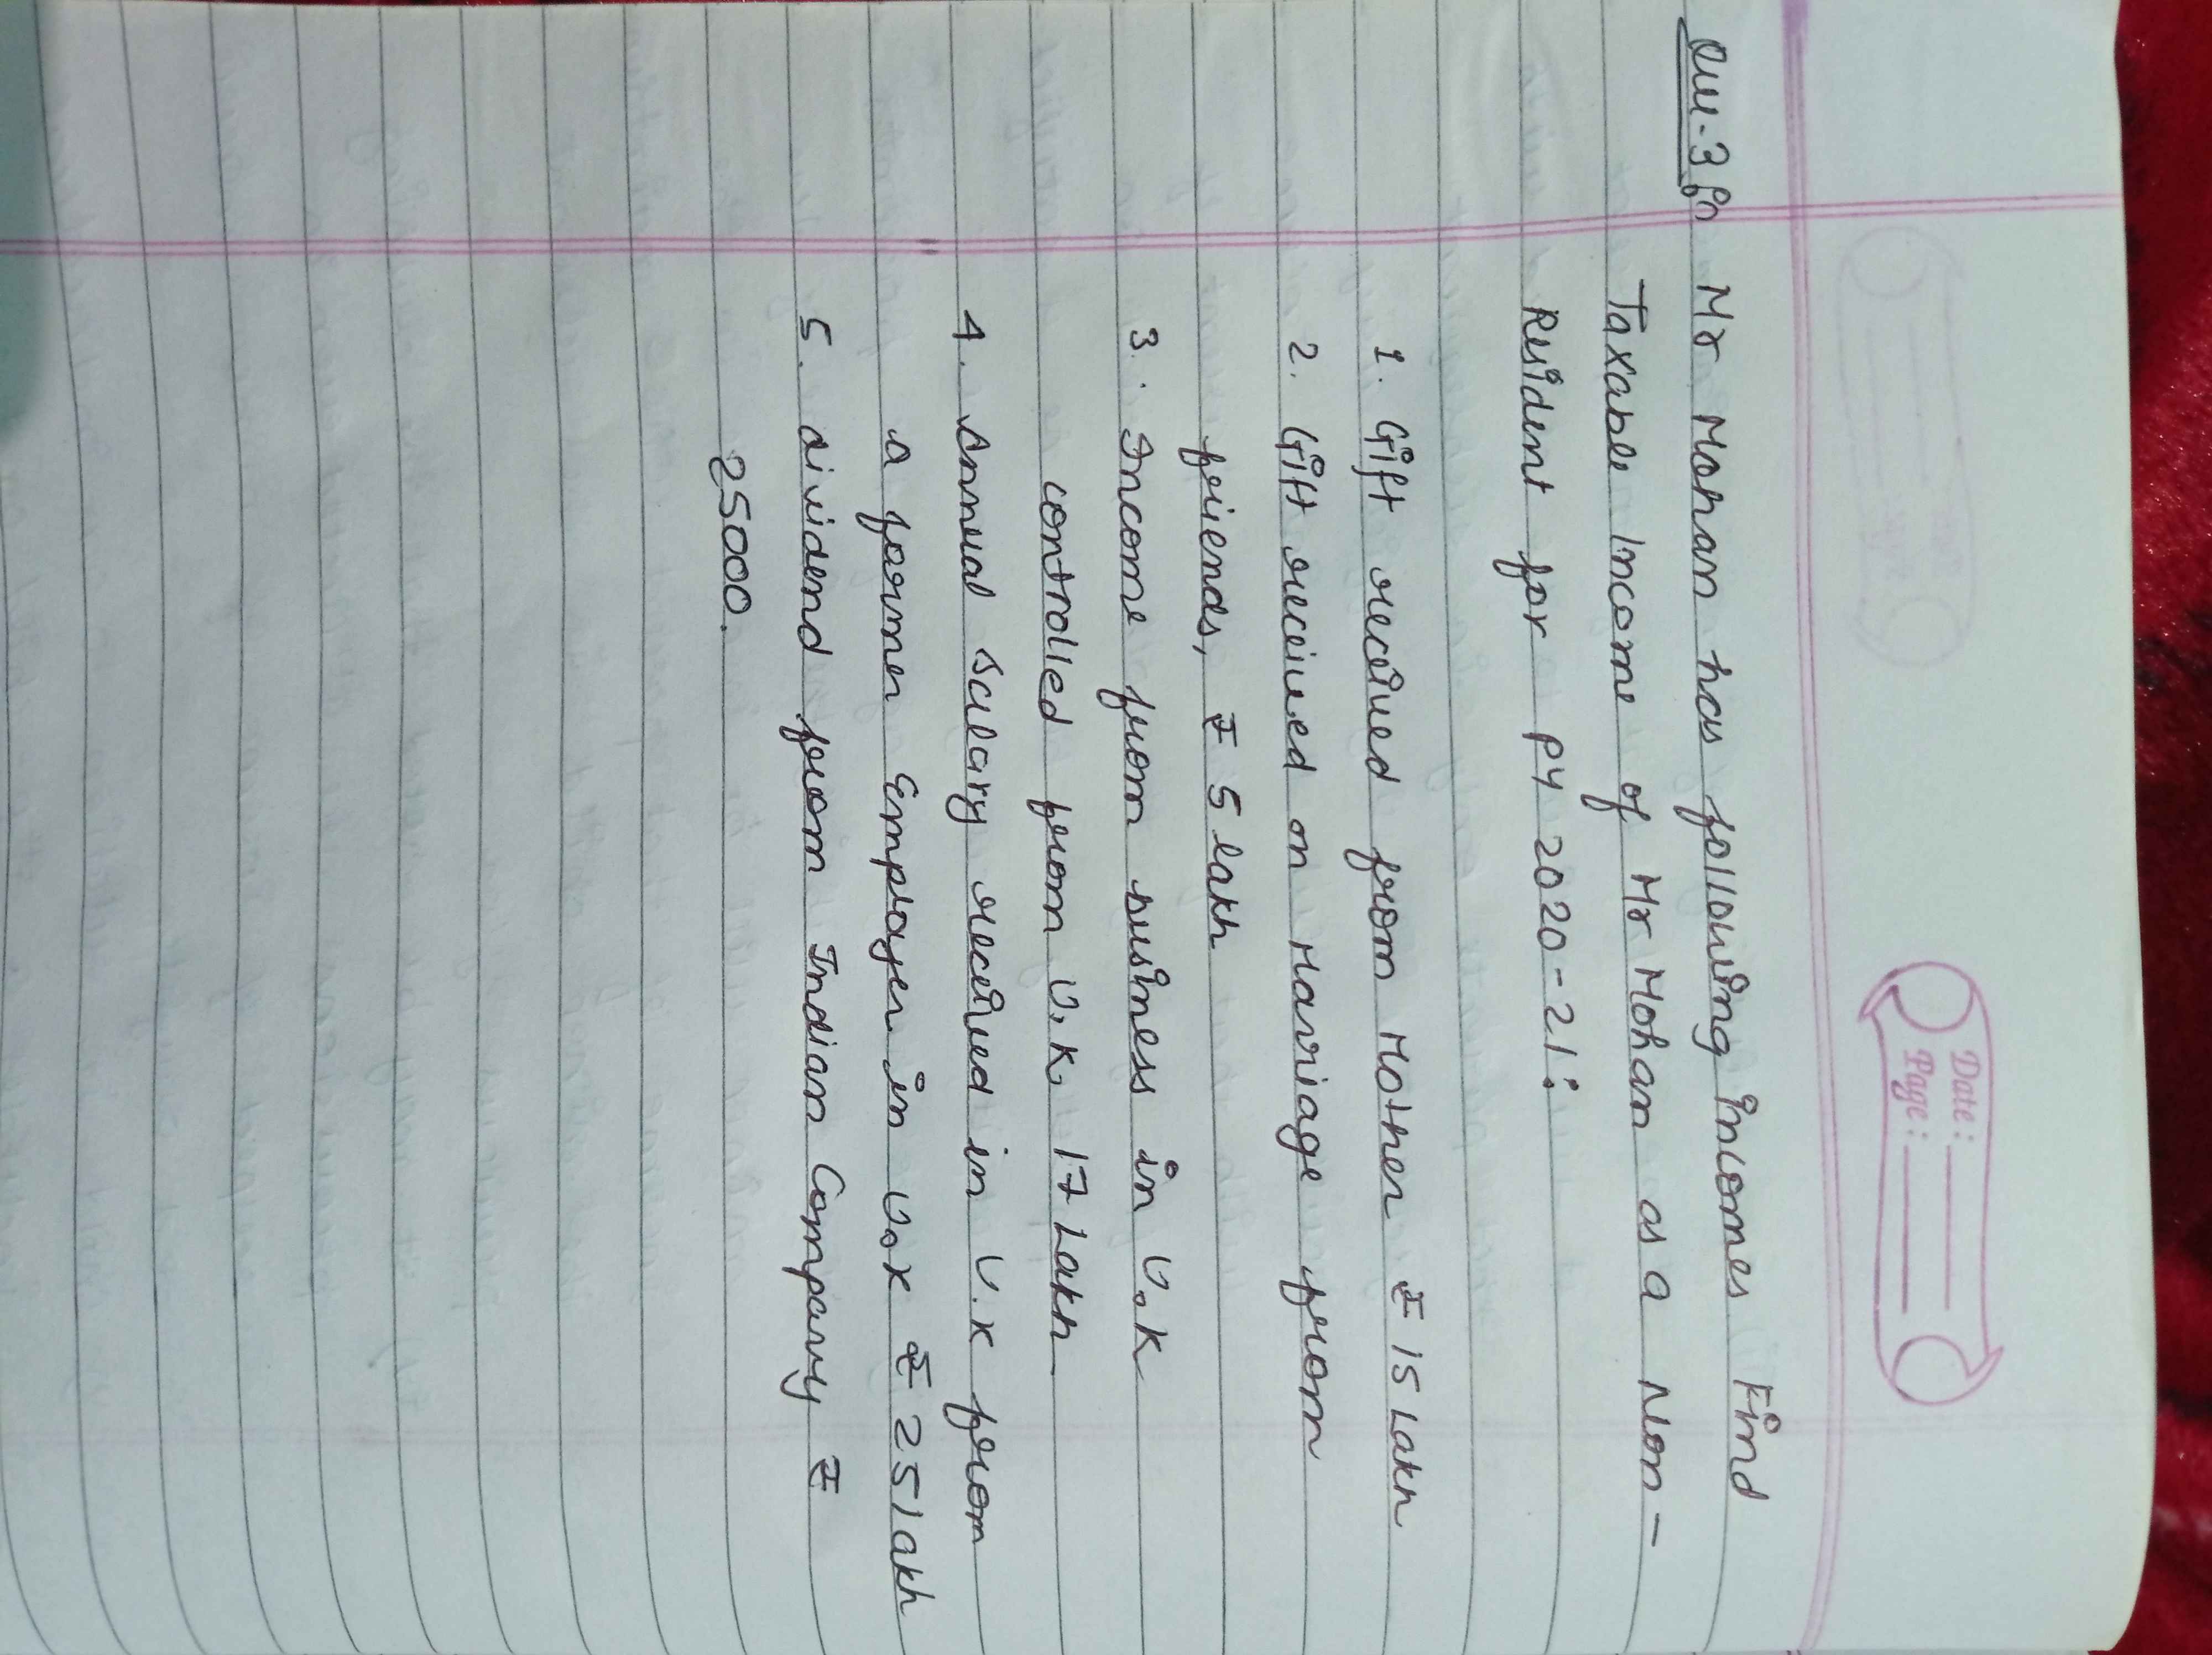 Date:
Page:
Que-3 Mr Mohan has following incomes Find
Taxable Income of Mr Mohan as a Non-
Resident for PY 2020-21:
1. Gift received from Mother ₹ 15 Lakh
2. Gift received on Marriage from
friends, ₹ 5 lakh
3. Income from business in U.K
controlled from U.K. 17 Lakh
4. Annual Salary received in U.K from
a former Employer in U.K ₹ 25 lakh
5. dividend from Indian Company ₹
25000.